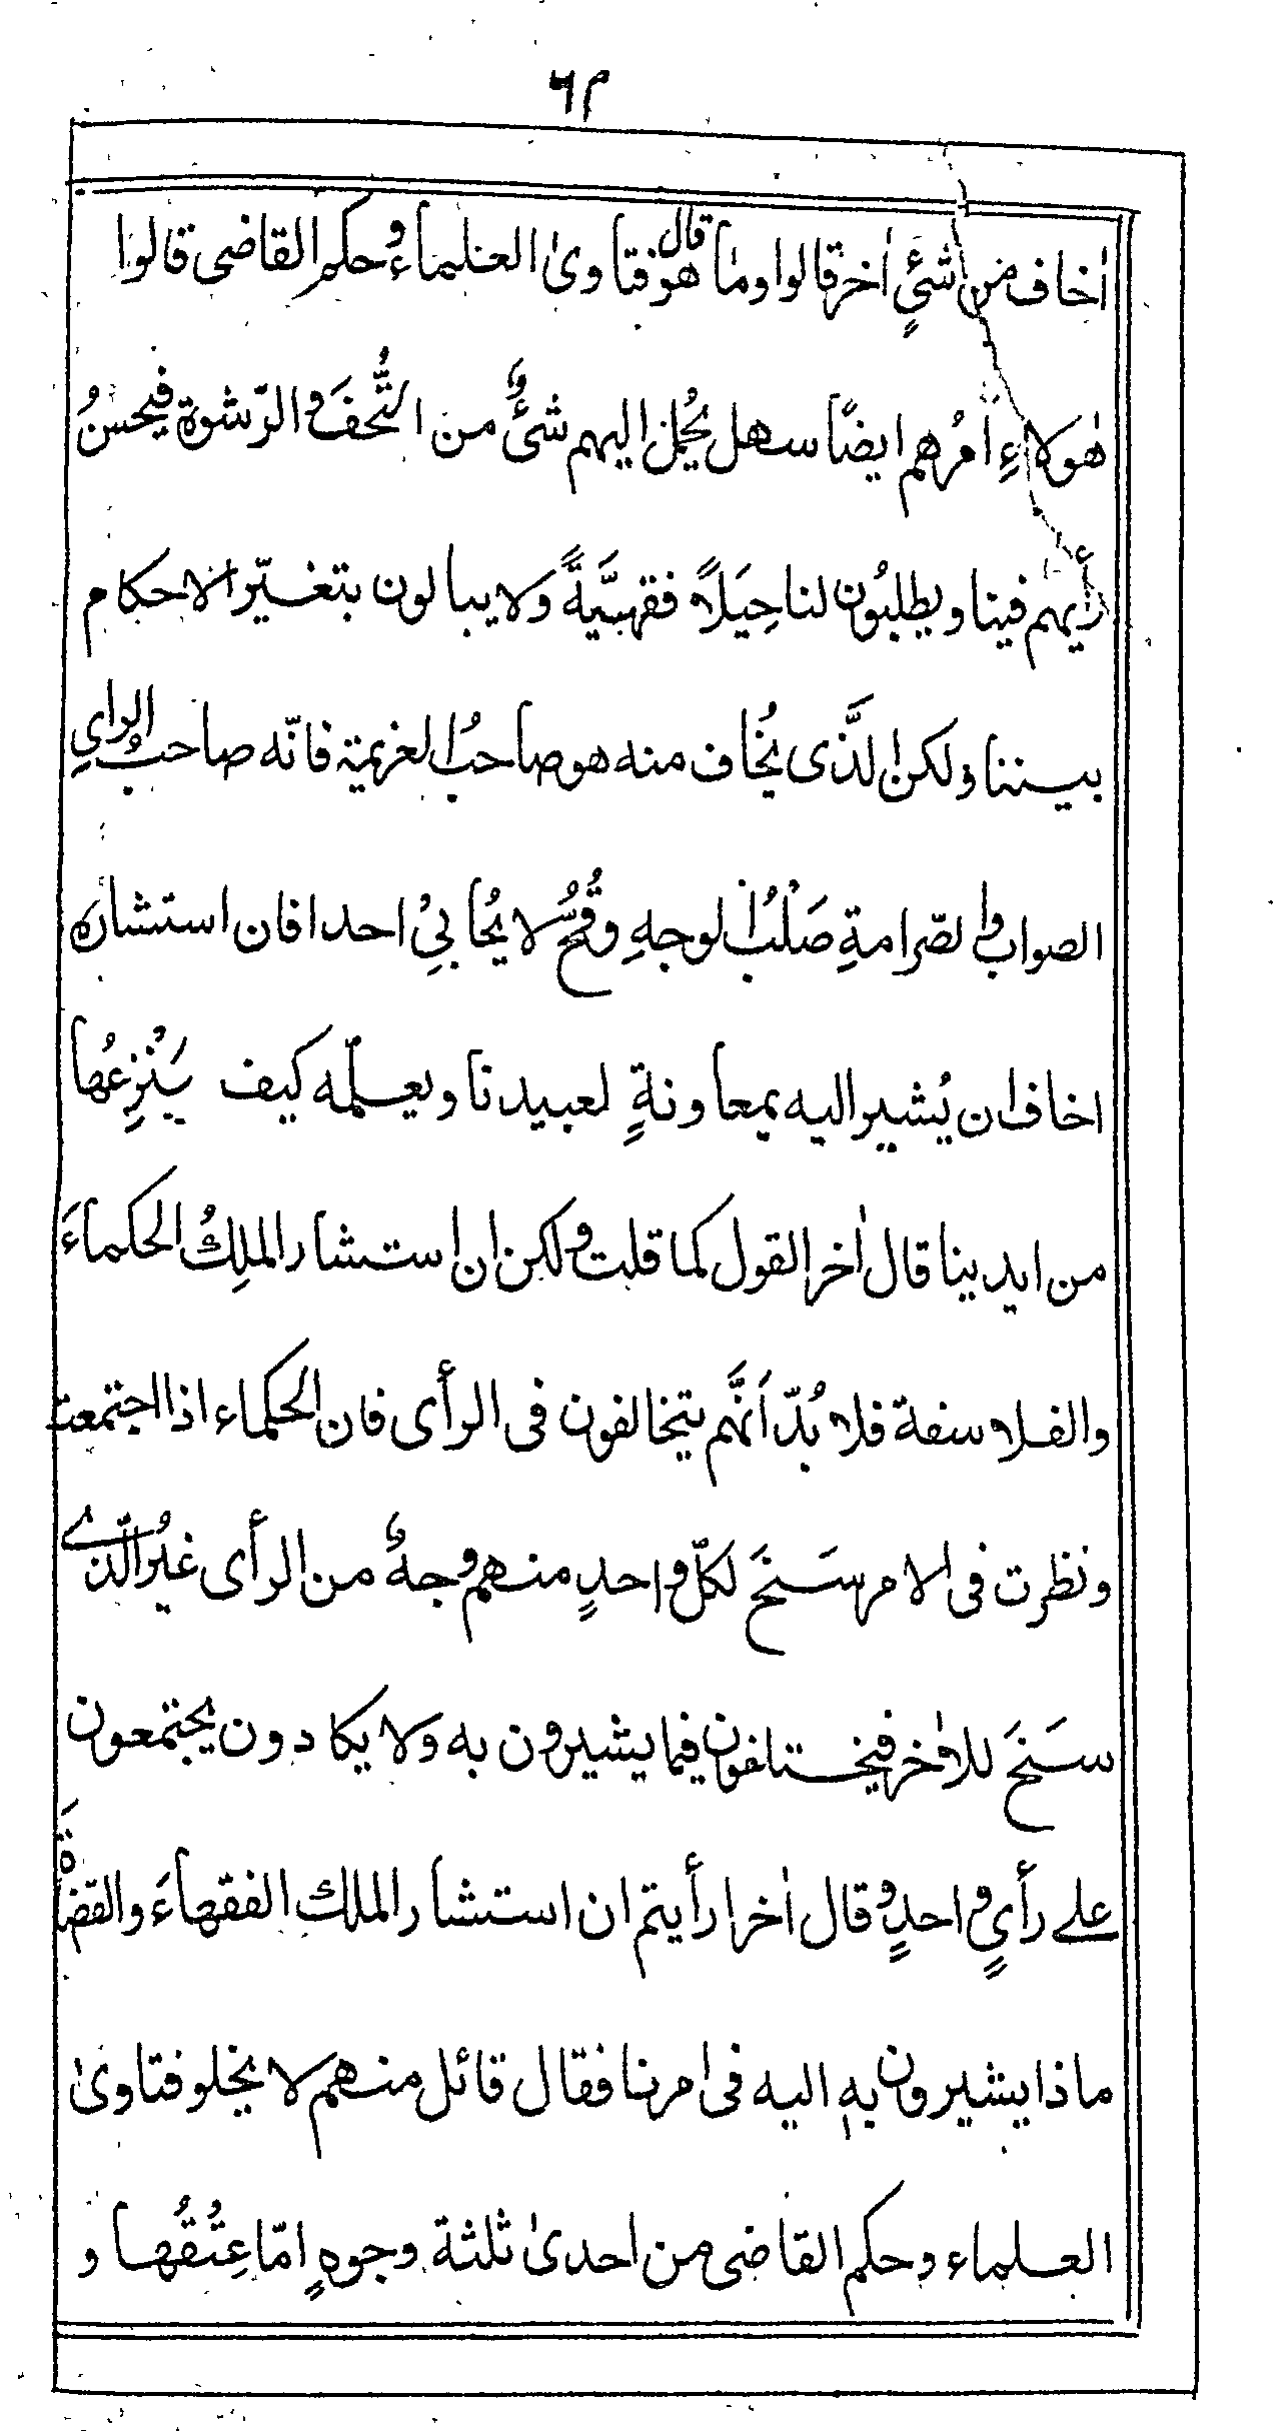 ٦٣
اٰخاف من شئٍ اٰخر قالوا وما هو قال فتاوىٰ العلماء وحكم القاضى قالوا
هٰولاءِ اَمرُهم ايضًا سهل يُحمل اليهم شئٌ من التُّحفَ والرّشوة فيحسنُ
رأيهم فينا ويطلبُون لنا حِيَلاً فقهيَّةً ولا يبالون بتغيّر الاحكام
بيننا ولكن الَّذى يُخاف منه هو صاحبُ العزيمة فانّه صاحبُ الراىِ
الصواب والصّرامةِ صَلْبُ الوجهِ وقُحٌّ لا يُحابىِ احدا فان استشاره
اخاف ان يُشير اليه بمعاونةٍ لعبيدنا ويعلّمه كيف يَنْزِعُها
من ايدينا قال اٰخر القول كما قلت ولكن ان استشار الملِكُ الحكماءَ
والفلاسفة فلا بُدّ اَنَّهم يتخالفون فى الرأى فان الحكماء اذا اجتمعت
ونظرت فى الامر سَنَحَ لكلّ واحدٍ منهم وجهٌ من الرأى غيرُ الّذے
سَنَحَ للاٰخر فيختلفون فيما يشيرون به ولا يكادون يجتمعون
علے رأىٍ واحدٍ وقال اٰخر ارأيتم ان استشار الملك الفقهاءَ والقضاةَ
ماذا يشيرون بهٖ اليه فى امرنا فقال قائل منهم لا يخلو فتاوىٰ
العلماء وحكم القاضى من احدىٰ ثلثة وجوهٍ امّا عِتْقُها و